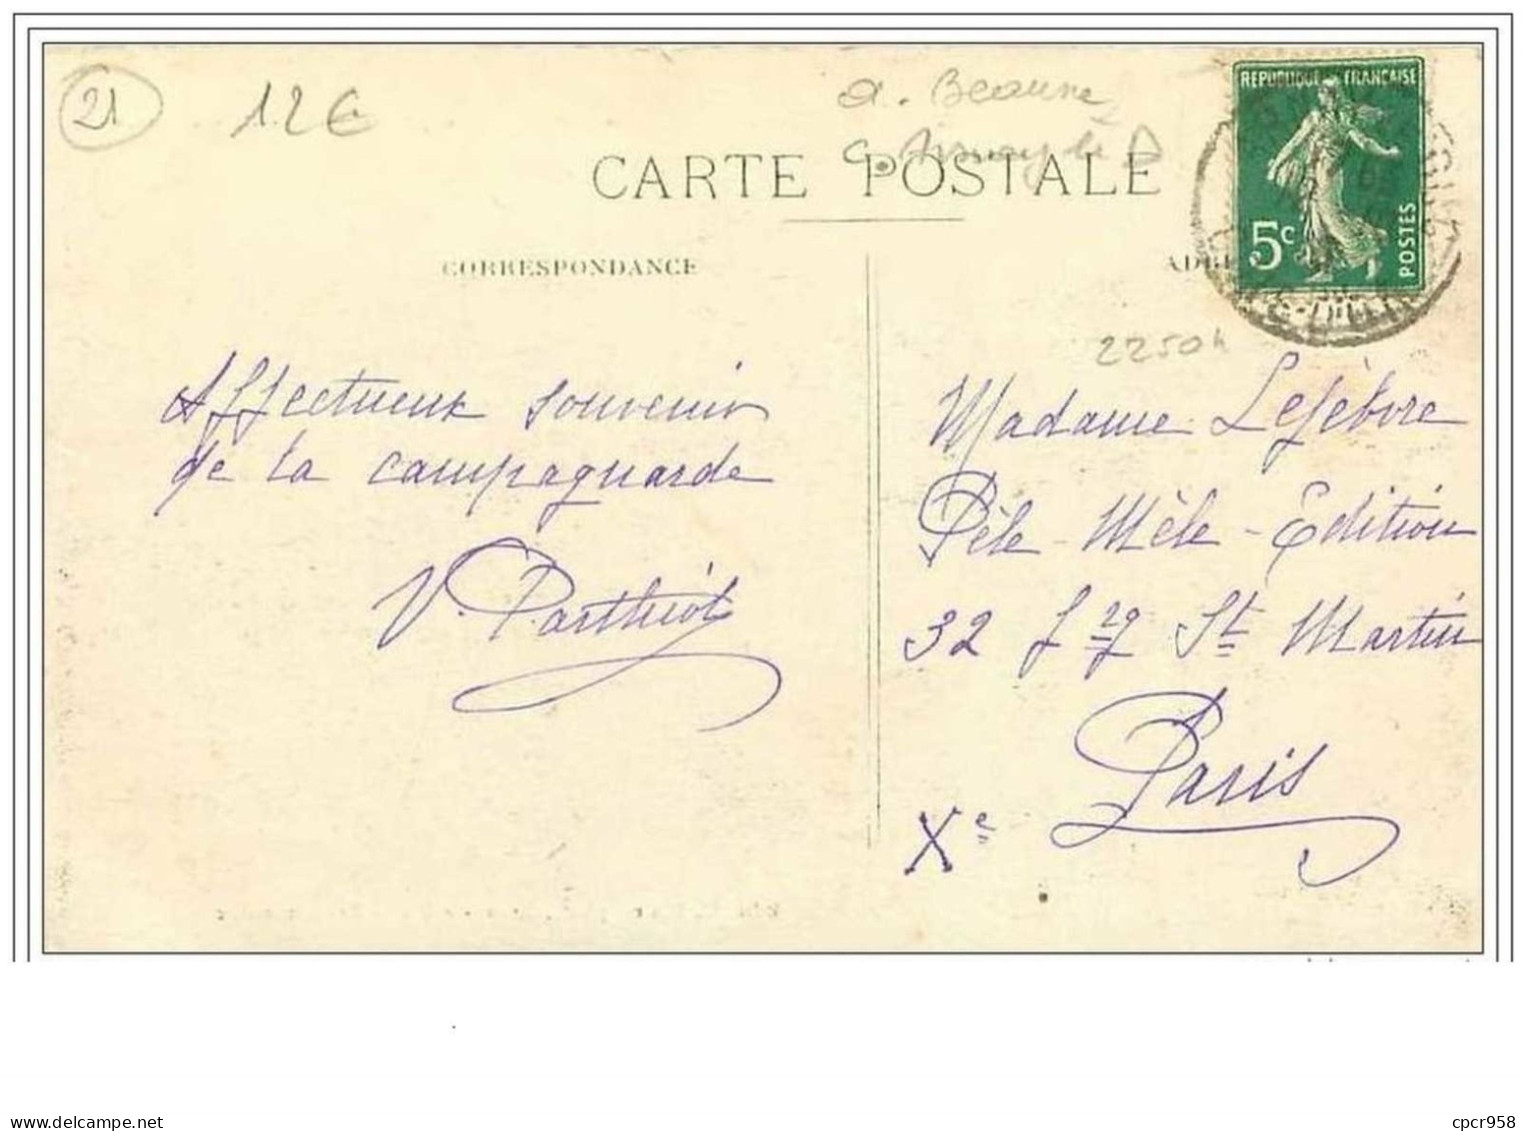 21
12€
a. Beaune
c. Arnay le D
CARTE POSTALE
REPUBLIQUE FRANÇAISE
5c
POSTES
CORRESPONDANCE
2250h
Affectueux souvenir
de la campagnarde
V. Parthiot
Madame Lefèbvre
Pêle-Mêle-Edition
32 St Martin
Paris
Xe
cpcr958